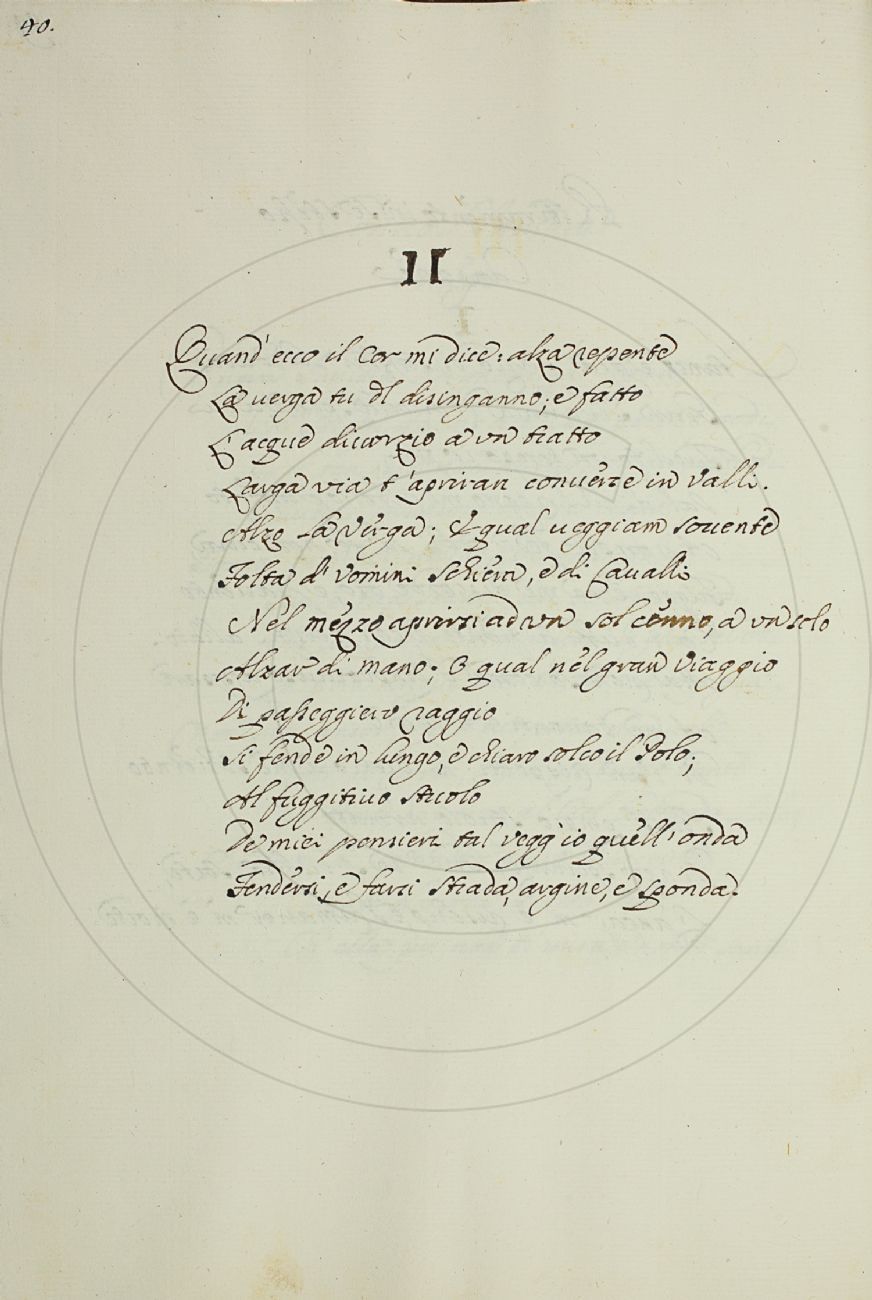 40.
II
Quand' ecco il Cor mi dice: alza repente
La verga tu dl disinganno; e fatto
L'acque divorzio a un tratto
Larga via t'apriran converse in Valli.
Alzo La Verga; E qual veggiam sovente
Folta d' Vomini Schiera, e di Cavalli
Nel mezzo aprirsi ad un sol cenno, a un solo
Alzar di mano; O qual nel gran Viaggio
Di passeggiero raggio
Si fende in lungo, e chiaro solco il Polo;
Al fuggitivo Stuolo
De miei pensieri tal vegg'io quell'onda
Fendersi, e farsi Strada, argine, e sponda.